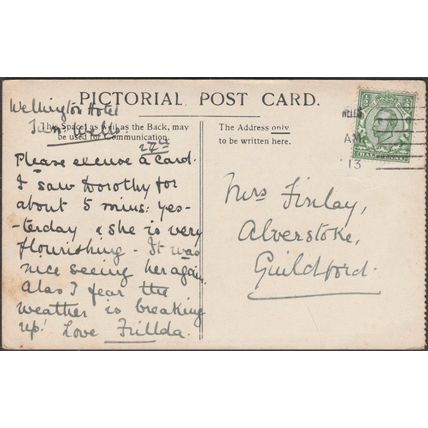 PICTORIAL POST CARD.
Wellington Hotel
Tun. Wells.
This Space, as well as the Back, may
be used for Communication.
27th
Please excuse a card.
I saw Dorothy for
about 5 mins: yes-
terday & she is very
flourishing. It was
nice seeing her again.
Alas I fear the
weather is breaking
up! Love Frillda.
The Address only
to be written here.
Mrs Finlay,
Alverstoke,
Guildford.
WELLS
AM
13
HALFPENNY